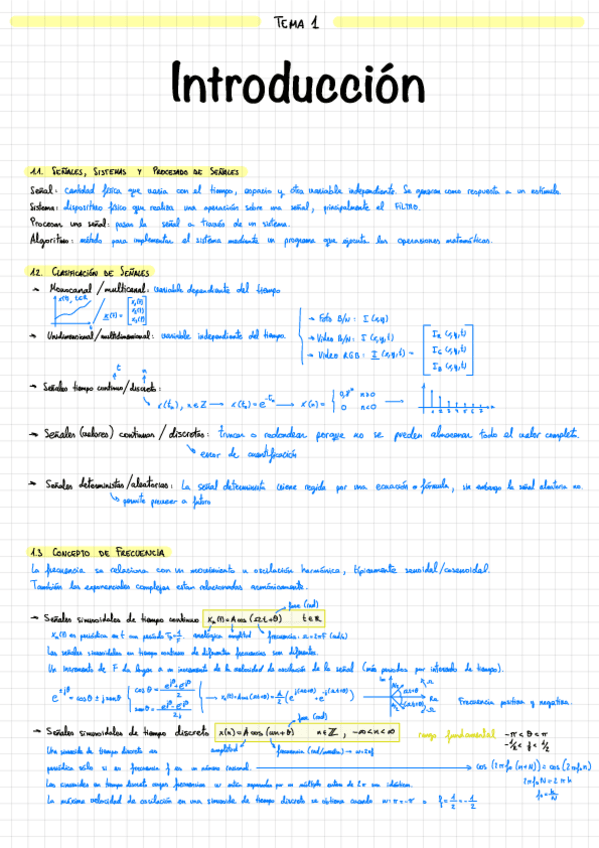 TEMA 1
Introducción
1.1. SEÑALES, SISTEMAS Y PROCESADO DE SEÑALES
Señal: cantidad física que varia con el tiempo, espacio y otra variable independiente. Se generan como respuesta a un estímulo.
Sistema: dispositivo físico que realiza una operación sobre una señal, principalmente el FILTRO.
Procesar una señal: pasar la señal a través de un sistema.
Algoritmo: método para implementar el sistema mediante un programa que ejecuta las operaciones matemáticas.
1.2. CLASIFICACIÓN DE SEÑALES
→ Monocanal/multicanal: variable dependiente del tiempo
→ Unidimensional/multidimensional: variable independiente del tiempo.
→ Foto B/N: I(x,y)
→ Video B/N: I(x,y,t)
→ Video RGB: I(x,y,t) =
→ Señales tiempo continuo/discreto:
x(tₙ), n∈Z → x(tₙ) = e^-tₙ → x(n) = { 0,8ⁿ n≥0
0 n<0
→ Señales (valores) continuas / discretas: truncar o redondear porque no se pueden almacenar todo el valor completo.
error de cuantificación
→ Señales deterministas/aleatorias: La señal determinista viene regida por una ecuación o fórmula, sin embargo la señal aleatoria no.
permite preveer a futuro
1.3 CONCEPTO DE FRECUENCIA
La frecuencia se relaciona con un movimiento u oscilación harmónica, típicamente senoidal/cosenoidal.
También las exponenciales complejas están relacionadas armónicamente.
fase (rad)
→ Señales sinusoidales de tiempo continuo xₐ(t)=A cos(Ωt+θ) t∈R
analógica amplitud frecuencia: Ω=2πF (rad/s)
Las señales sinusoidales en tiempo continuo de diferentes frecuencias son diferentes.
Un incremento de F da lugar a un incremento de la velocidad de oscilación de la señal (más periodos por intervalo de tiempo).
Frecuencia positiva y negativa.
fase (rad)
→ Señales sinusoidales de tiempo discreto x(n) = A cos(ωn+θ) n∈Z, -∞<n<∞ rango fundamental -π<ω<π
-1/2<f<1/2
amplitud frecuencia (rad/muestra) → ω=2πf
Una senoide de tiempo discreto es
periódica sólo si su frecuencia f es un número racional. → cos(2πf₀(n+N)) = cos(2πf₀n)
2πf₀N = 2πk
f₀=k/N
Las sinusoides en tiempo discreto cuyas frecuencias ω están separadas por un múltiplo entero de 2π son idénticas.
La máxima velocidad de oscilación en una sinusoide de tiempo discreto se obtiene cuando ω=π=-π o f=1/2=-1/2